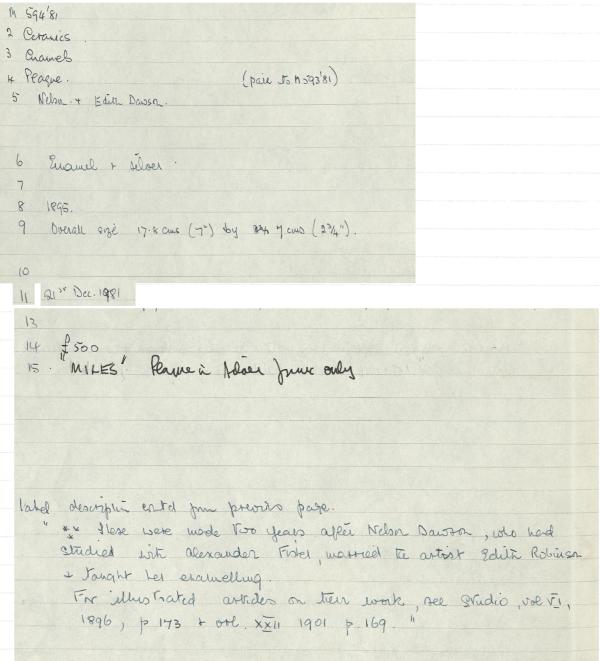 M 594'81
2 Ceramics.
3 Enamels
4 Plaque. (pair to M593'81)
5 Nelson + Edith Dawson.
6 Enamel + silver.
7
8 1895.
9 Overall size 17.8 cms (7") by 7 cms (2¾").
10
11 21st Dec. 1981
13
14 £500
15. "MILES" Plaque in silver frame only
label description contd from previous page.
" ** These were made two years after Nelson Dawson, who had
studied with Alexander Fisher, married the artist Edith Robinson
+ taught her enamelling.
For illustrated articles on their work, see Studio, vol VI,
1896, p 173 + vol. XXII 1901 p. 169. "